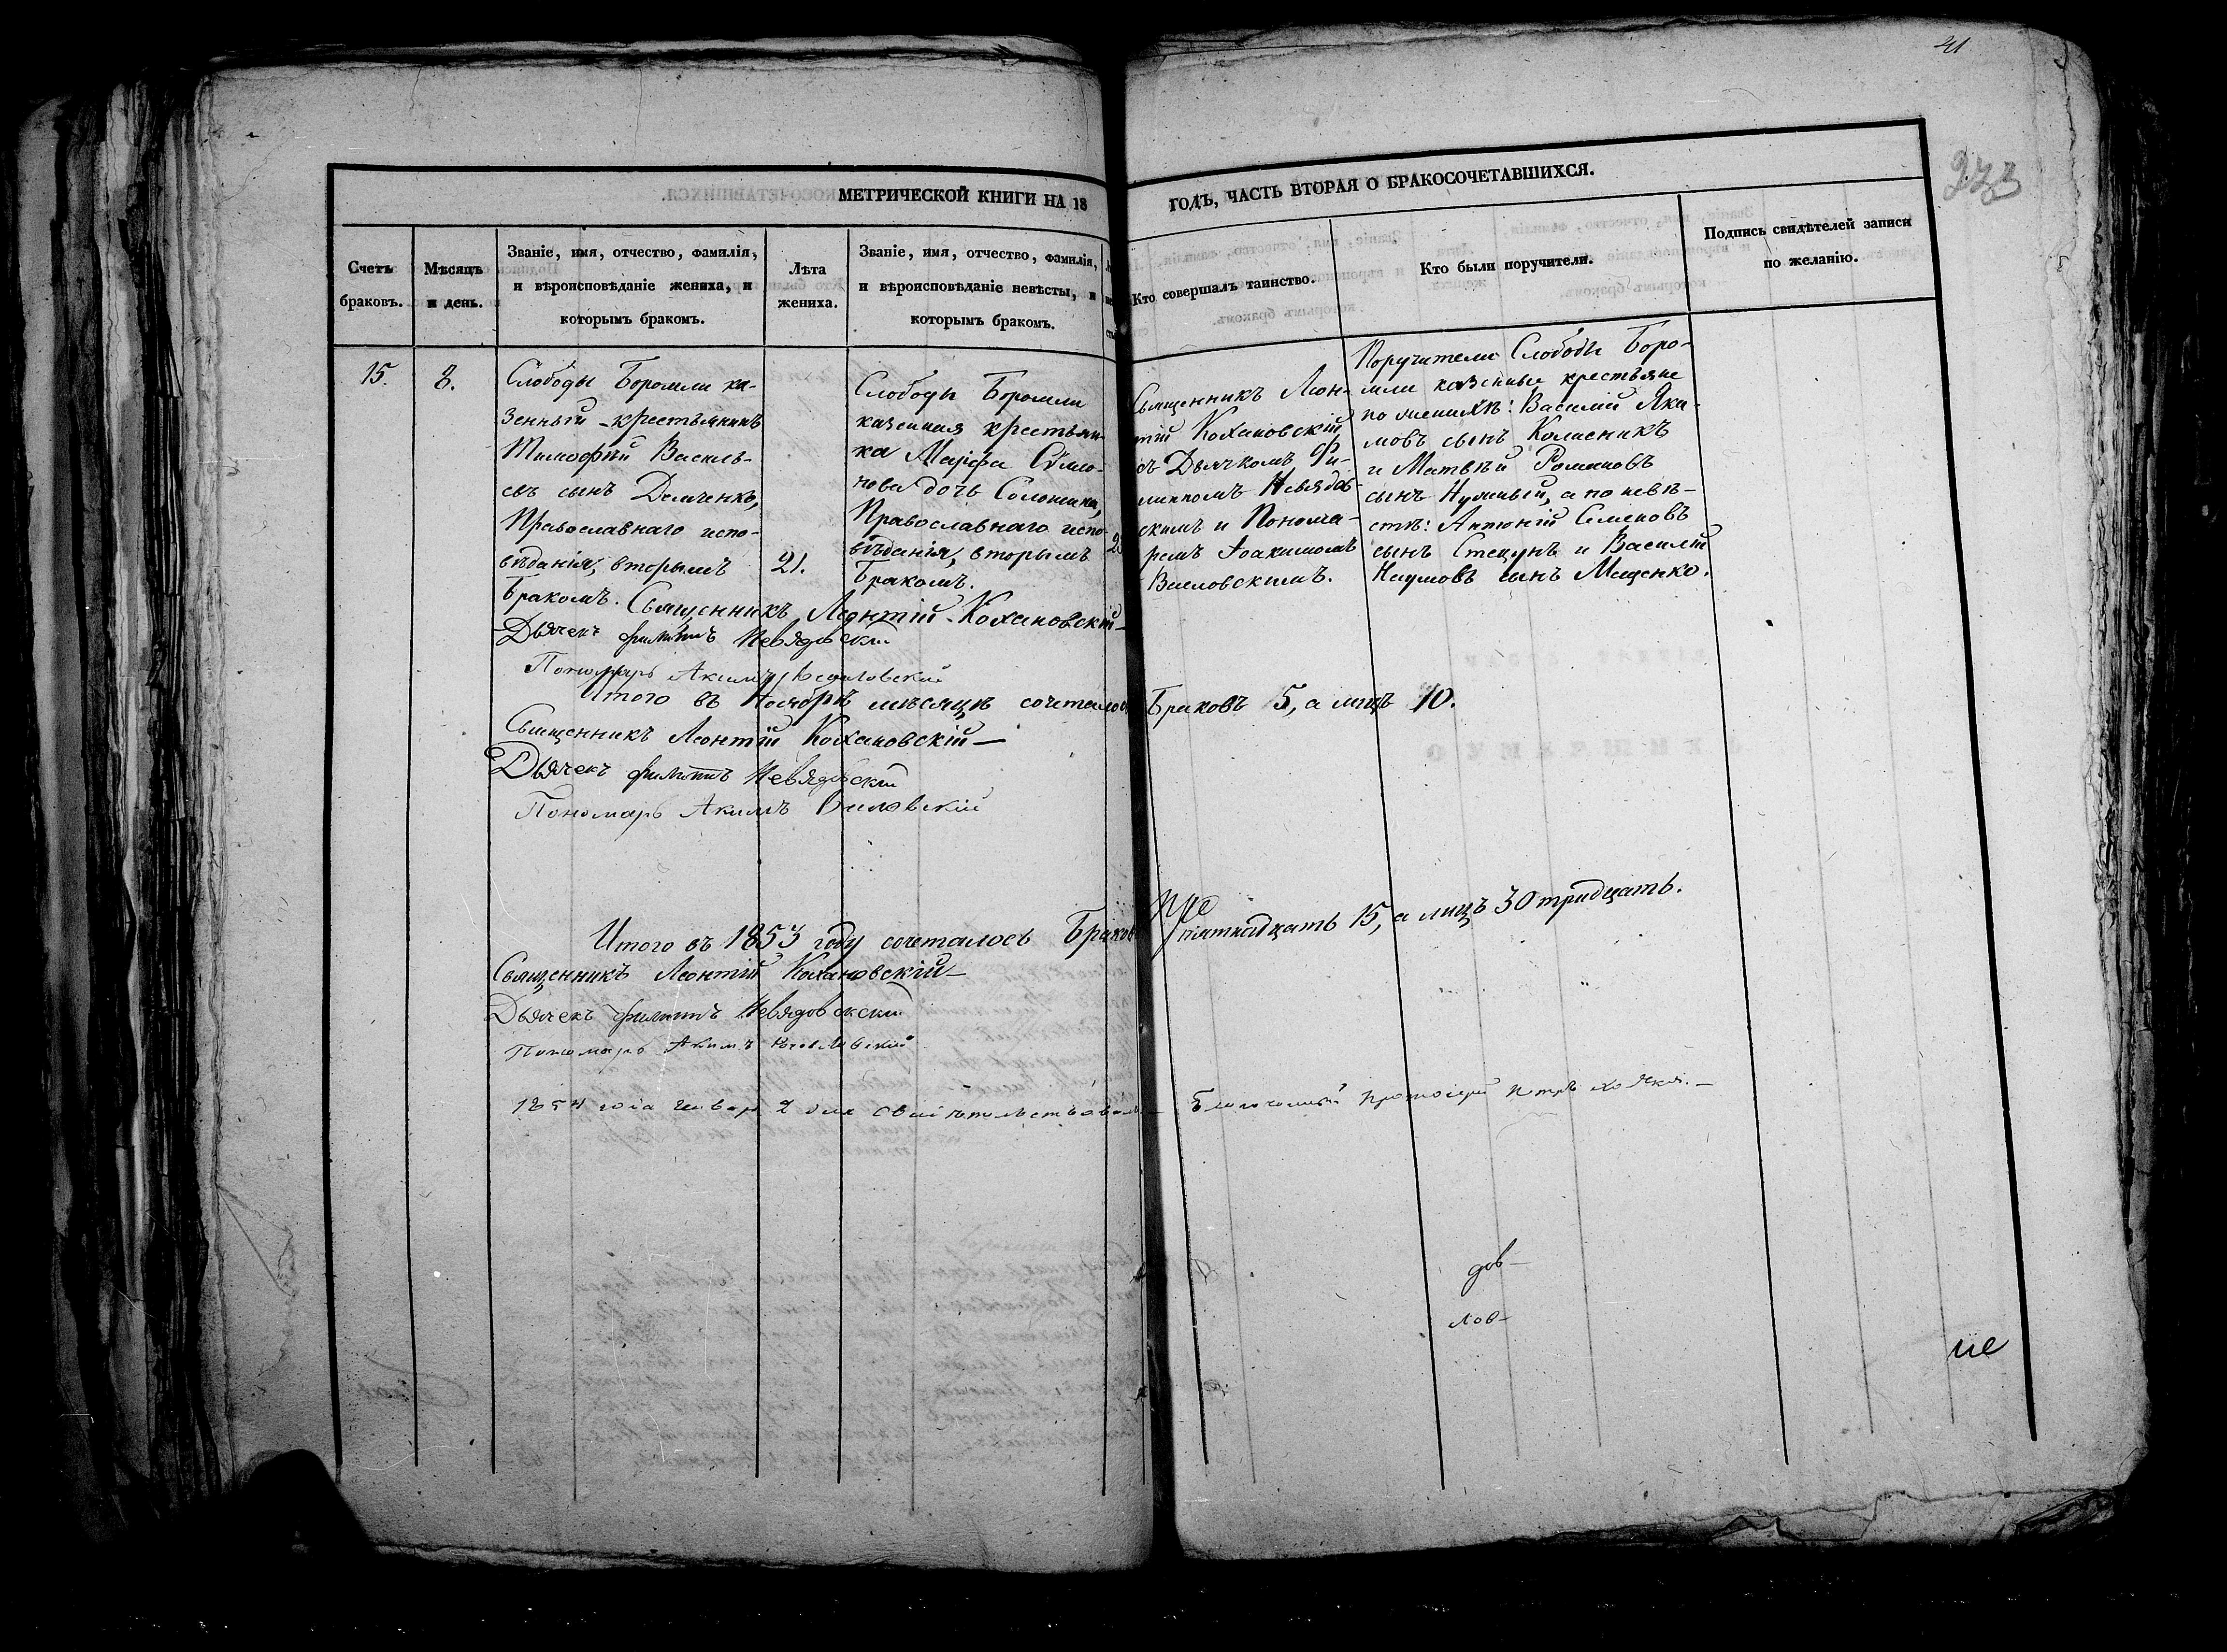 41
МЕТРИЧЕСКОЙ КНИГИ НА 18
Счетъ браковъ.
Мѣсяцъ и день.
Званіе, имя, отчество, фамилія,
и вѣроисповѣданіе жениха, и
которымъ бракомъ.
Лѣта
жениха.
Званіе, имя, отчество, фамилія,
и вѣроисповѣданіе невѣсты, и
которымъ бракомъ.
15.
8.
Слободы Боромли ка-
зенный крестьянинъ
Тимофѣй Василь-
евъ сынъ Демченко,
Православнаго испо-
вѣданія, вторымъ
Бракомъ.
21.
Слободы Боромли
казенная крестьян-
ка Марфа
дочь
Православнаго испо-
вѣданія, вторымъ
Бракомъ.
Священникъ Леонтій Кохановскій
Дьячекъ Филиппъ Невядовскій
Пономарь Акимъ
Итого въ Ноябрѣ мѣсяцѣ сочеталось
Священникъ Леонтій Кохановскій
Дьячекъ Филиппъ Невядовскій
Пономарь Акимъ
Итого въ 1853 году сочеталось Браковъ
Священникъ Леонтій Кохановскій
Дьячекъ Филиппъ Невядовскій
Пономарь Акимъ
1854 года Генвар 2 дня свидѣтельствовалъ
ГОДЪ, ЧАСТЬ ВТОРАЯ О БРАКОСОЧЕТАВШИХСЯ.
Кто совершалъ таинство.
Кто были поручители.
Подпись свидѣтелей записи
по желанію.
Священникъ Леон-
тій Кохановскій
съ Дьячкомъ Фи-
липпомъ Невядов-
скимъ и Понома-
ремъ Іоакимомъ
Поручители Слободы Боро-
мли казенные крестьяне
по женихѣ: Василій Яки-
мовъ сынъ Колесникъ
и Матвѣй Романовъ
сынъ Нужный, а по невѣ-
стѣ: Антоній Семеновъ
сынъ Стецунъ и Василій
Наумовъ сынъ Мащенко.
Браковъ 5, а лицъ 10.
пятнадцать 15, а лицъ 30 тридцать.
Благочинный Протоіерей Петръ
дов-
лов-